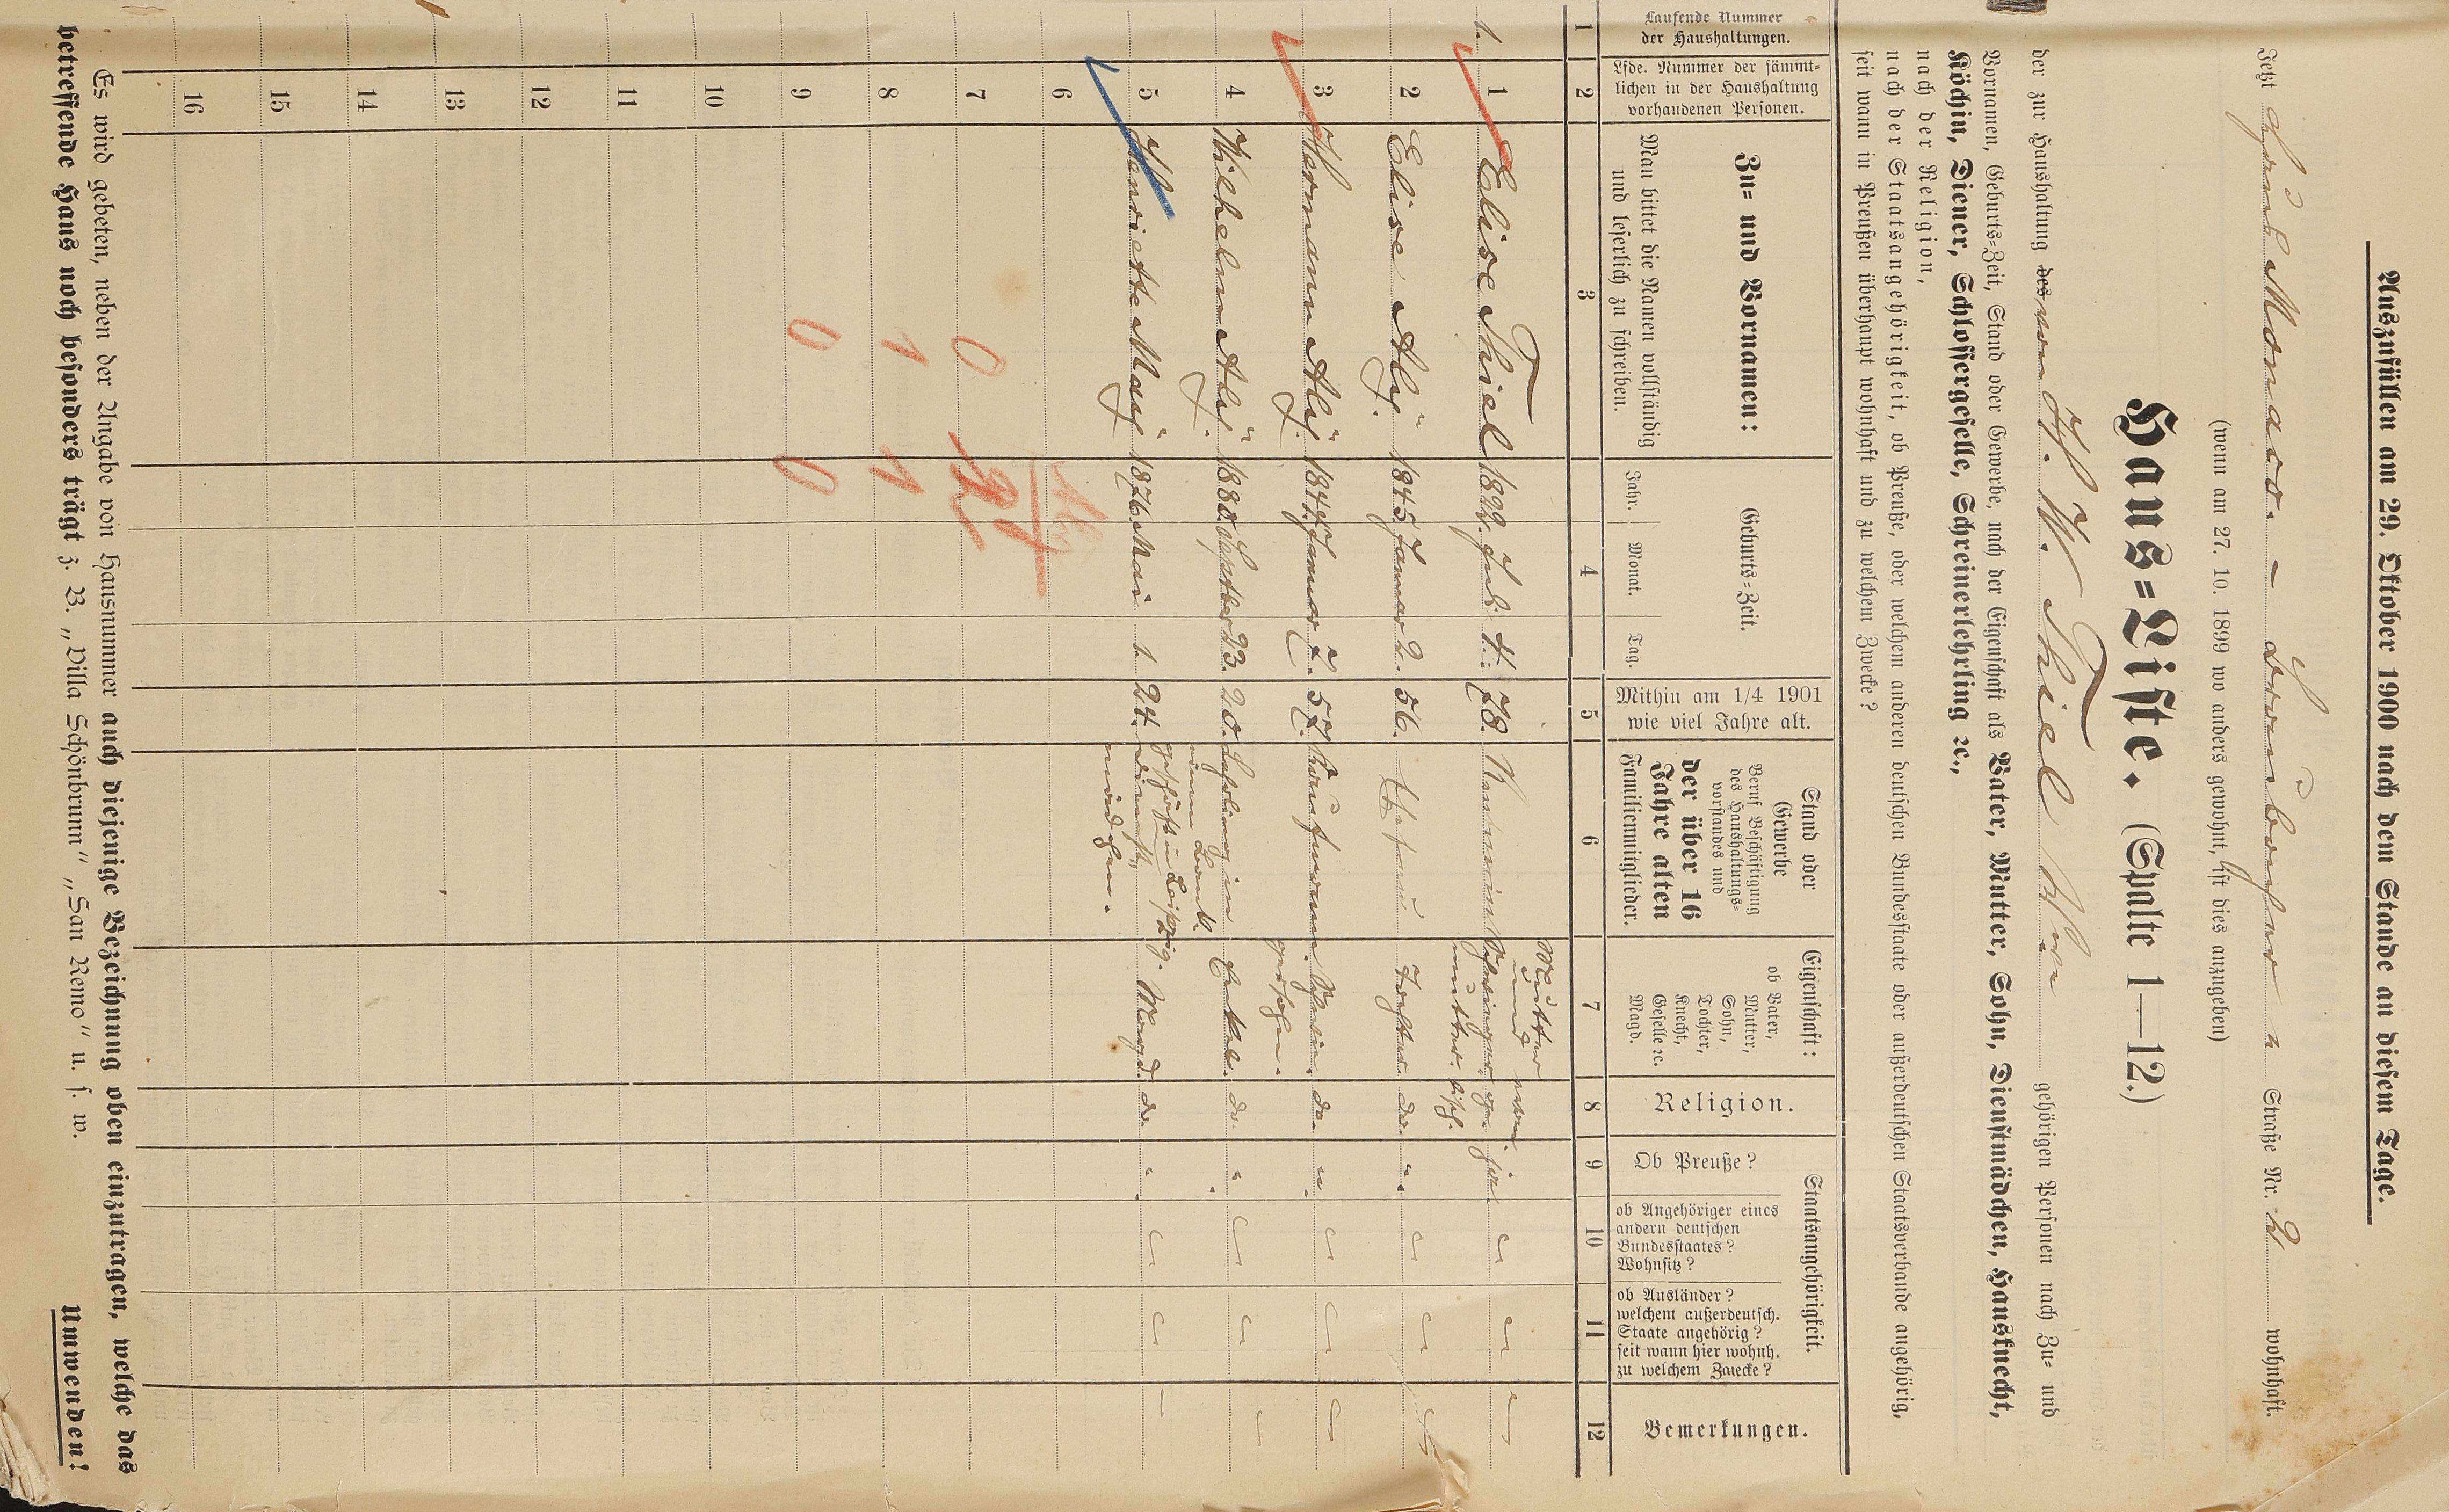 Auszufüllen am 29. Oktober 1900 nach dem Stande an diesem Tage.
Jetzt Haus Monaco. – Straße Nr. 2 wohnhaft.
(wenn am 27. 10. 1899 wo anders gewohnt, ist dies anzugeben)
Haus=Liste. (Spalte 1—12.)
der zur Haushaltung des von H. W. Thiel Wwe gehörigen Personen nach Zu= und
Vornamen, Geburts=Zeit, Stand oder Gewerbe, nach der Eigenschaft als Vater, Mutter, Sohn, Dienstmädchen, Hausknecht,
Köchin, Diener, Schlossergeselle, Schreinerlehrling ꝛc.,
nach der Religion,
nach der Staatsangehörigkeit, ob Preuße, oder welchem anderen deutschen Bundesstaate oder außerdeutschen Staatsverbande angehörig,
seit wann in Preußen überhaupt wohnhaft und zu welchem Zwecke?
Laufende Nummer
der Haushaltungen.
Lfde. Nummer der sämmt=
lichen in der Haushaltung
vorhandenen Personen.
Zu= und Vornamen:
Man bittet die Namen vollständig
und leserlich zu schreiben.
Geburts=Zeit.
Jahr.
Monat.
Tag.
Mithin am 1/4 1901
wie viel Jahre alt.
Stand oder
Gewerbe
Beruf Beschäftigung
des Haushaltungs=
vorstandes und
der über 16
Jahre alten
Familienmitglieder.
Eigenschaft:
ob Vater,
Mutter,
Sohn,
Tochter,
Knecht,
Geselle ꝛc.
Magd.
Religion.
Staatsangehörigkeit.
Ob Preuße?
ob Angehöriger eines
andern deutschen
Bundesstaates?
Wohnsitz?
ob Ausländer?
welchem außerdeutsch.
Staate angehörig?
seit wann hier wohnh.
zu welchem Zwecke?
Bemerkungen.
1 2 3 4 5 6 7 8 9 10 11 12
1. 1 Elise Thiel 1822. Juli 4. 78. Rentnerin Mutter und Schwiegermutter. ja.
2 Elise Alij. 1845. Januar 2. 56. Ehefrau Tochter. do. "
3 Hermann Alij. 1844. Januar 7. 57. Kaufmann. do. "
4 Wilhelm Alij. 1880. Septber 23. 20. Lehrling in einem Bank-
geschäft in Leipzig. Enkel. do. "
5 Henriette Maij 1876. Mai 1. 24. Dienst-
mädchen. Magd. do. "
6
7 0 2
8 1 1
9 0 0
10
11
12
13
14
15
16
Es wird gebeten, neben der Angabe von Hausnummer auch diejenige Bezeichnung oben einzutragen, welche das
betreffende Haus noch besonders trägt z. B. „Villa Schönbrunn“ „San Remo“ u. s. w.
Umwenden!